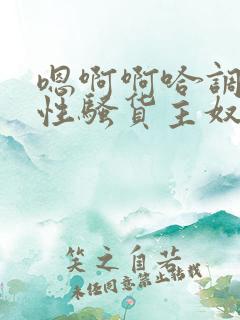 嗯啊啊哈调
性骚货主奴
笑之自若
未经同意禁止转载